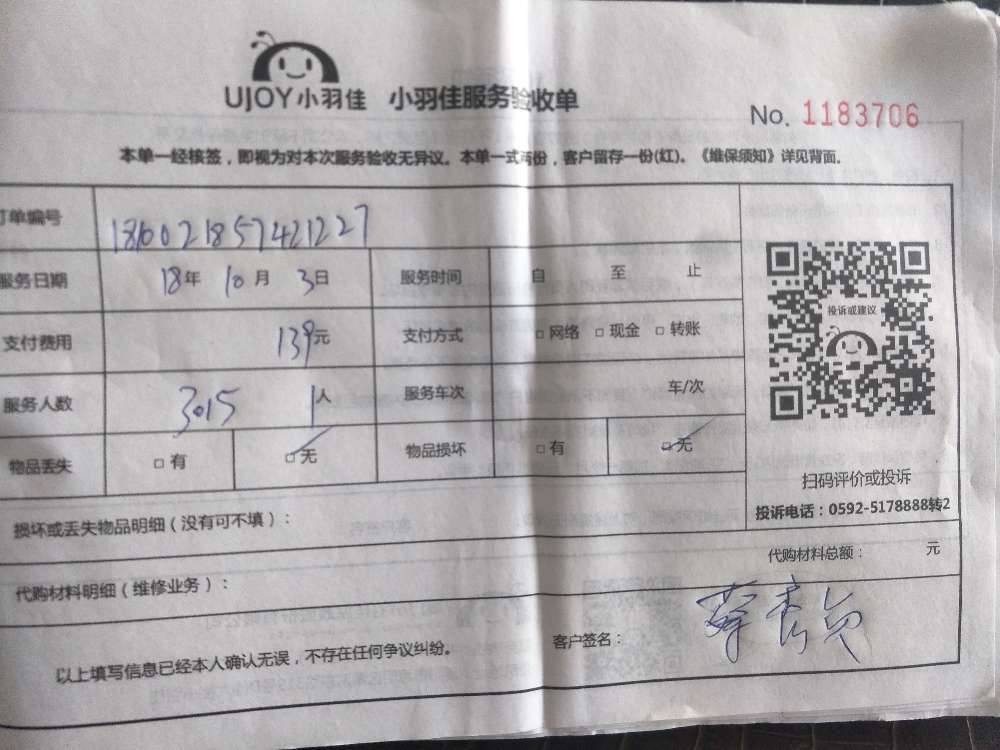 UJOY小羽佳 小羽佳服务验收单
No. 1183706
本单一经核签，即视为对本次服务验收无异议。本单一式两份，客户留存一份(红)。《维保须知》详见背面。
订单编号 1810021857421227
服务日期 18年 10月 3日 服务时间 自 至 止
投诉或建议
支付费用 139元 支付方式 □ 网络 □ 现金 □ 转账
服务人数 3015 1人 服务车次 车/次
物品丢失 □ 有 □ 无 物品损坏 □ 有 □ 无
扫码评价或投诉
投诉电话：0592-5178888转2
损坏或丢失物品明细（没有可不填）：
代购材料总额： 元
代购材料明细（维修业务）：
客户签名：
以上填写信息已经本人确认无误，不存在任何争议纠纷。